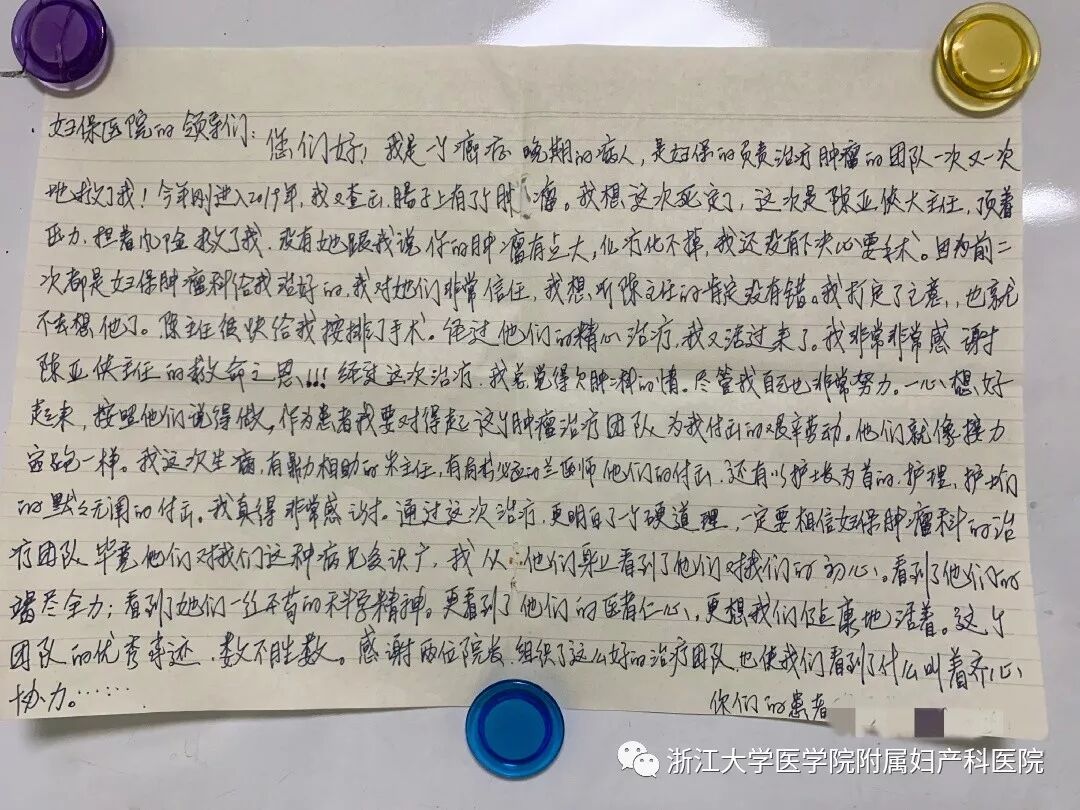 妇保医院的领导们:
您们好!我是一个癌症晚期的病人,是妇保的负责治疗肿瘤的团队一次又一次
地救了我!今年刚进入2019年,我又查出肠子上有了个肿瘤。我想这次死定了,这次是陈亚侠大主任,顶着
压力,担着风险救了我,没有她跟我说你的肿瘤有点大,化疗化不掉,我还没有下决心要手术。因为前二
次都是妇保肿瘤科给我治好的,我对她们非常信任,我想听陈主任的肯定没有错。我打定了主意,也就
不去想他了。陈主任很快给我按排了手术。经过他们的精心治疗,我又活过来了。我非常非常感谢
陈亚侠主任的救命之恩!!!经过这次治疗,我总觉得欠肿瘤科的情。尽管我自己也非常努力。一心想好
起来,按照他们说得做。作为患者我要对得起这个肿瘤治疗团队为我付出的艰辛劳动。他们就像接力
赛跑一样。我这次生病,有鼎力相助的朱主任,有有求必应的兰医师他们的付出,还有以护士长为首的,护理,护士们
的默默无闻的付出。我真得非常感谢。通过这次治疗,更明白了一个硬道理,一定要相信妇保肿瘤科的治
疗团队,毕竟他们对我们这种病见多识广,我从他们身上看到了他们对我们的初心。看到了他们的
竭尽全力;看到了她们一丝不苟的科学精神。更看到了他们的医者仁心,更想我们健康地活着。这个
团队的优秀事迹,数不胜数。感谢两位院长,组织了这么好的治疗团队,也使我们看到了什么叫着齐心
协力。……
你们的患者
浙江大学医学院附属妇产科医院